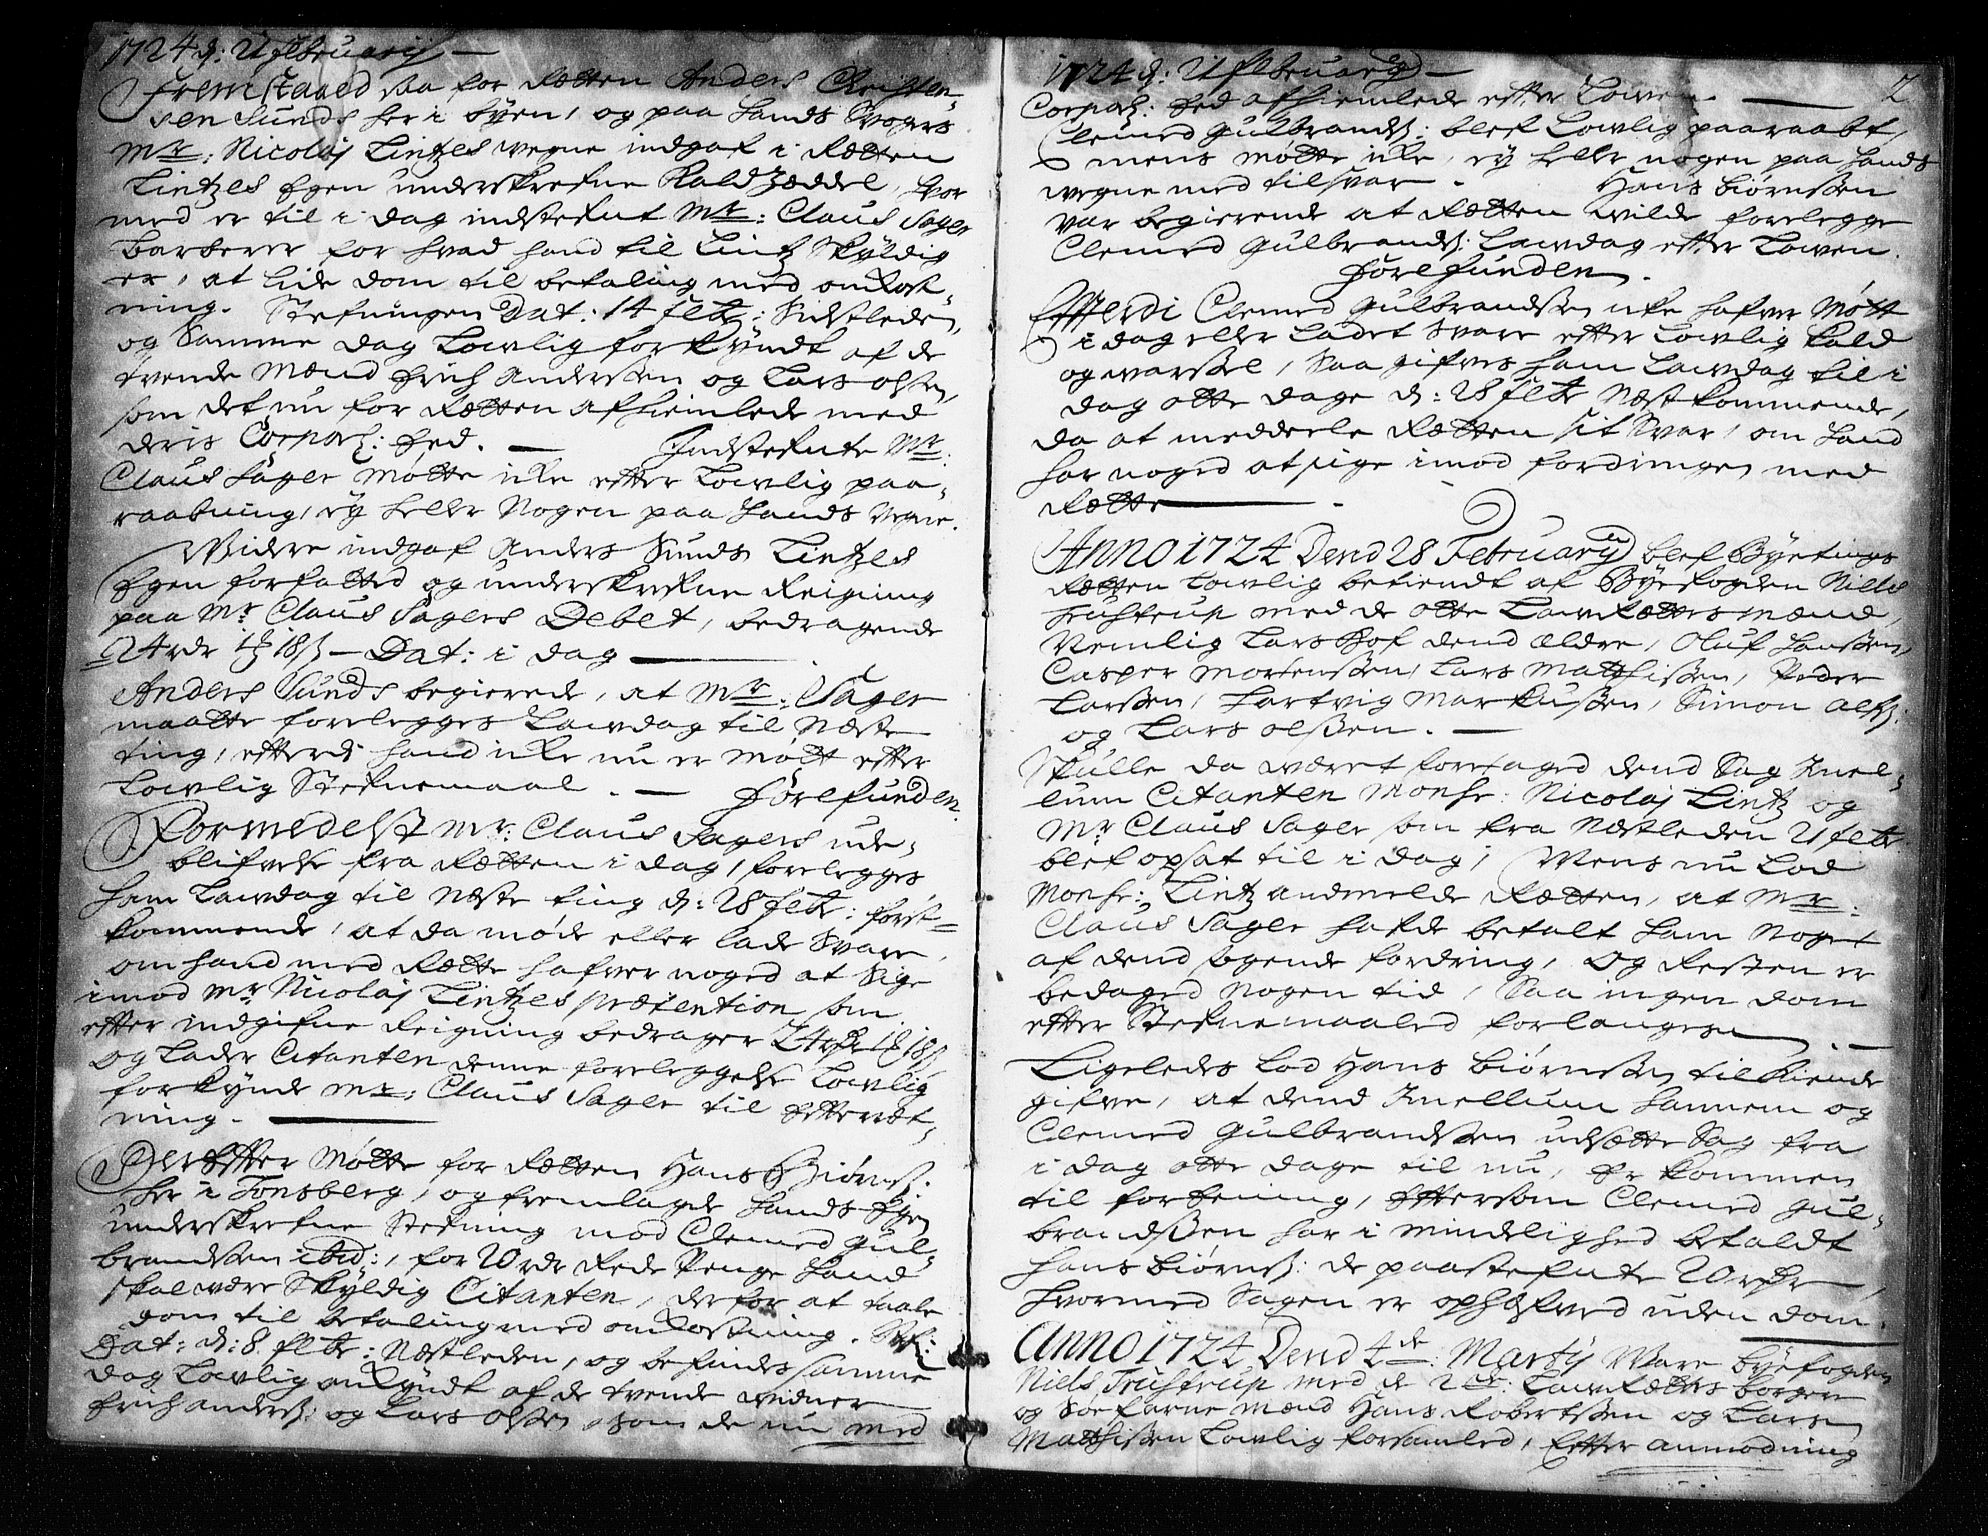 1724 d: 21 februarij
Fremstaaed saa for Rætten Anders Christen-
sen Sunds her i byen, og paa hands Svogers
Mr: Nicolaj Lintzes wegne indgaf i Rætten
Lintzes Egen underskrefne Kald Zæddel, hvor
med er til i dag indstefnt Mr: Claus Sager
barberer for hvad hand til Lintz Skyldig
er, at lide dom til betaling med omkost-
ning. Stefningen Dat: 14 febr: Sidstleden,
og Samme dag Lowlig forkyndt af de
tvende Mænd Erich Anderssen og Lars olssen,
som det nu for Rætten afhiemlede med
deris Corporl: Eed. Indstefnte Mr:
Claus Sager Møtte icke efter Lowlig paa-
raabning, ey heller Nogen paa hands Vegne.
Widere indgaf Anders Sunds Lintzes
Egen forfatted og underskrefne Reigning
paa Mr Claus Sagers Debet, bedragende
24 rdr 1 ß 18 ß Dat: i dag
Anders Sunds begierede, at Mr: Sager
maatte forelegges Lawdag til Næste
ting, efterdi hand icke nu er Mødt efter
Lowlig Stefnemaal. Forefunden.
Formedelst Mr: Claus Sagers ude-
blifvelse fra Rætten i dag, forelegges
ham Lawdag til Næste ting d: 28 febr: først-
kommende, at da møde eller lade Svare,
om hand med Rætte hafver noged at Sige
imod Mr Nicolaj Lintzes prætention som
efter indgifne Reigning bedrager 24 rdr 1 ß 18 ß
og Lader Citanten denne foreleggelse Lowlig
forkynde Mr: Claus Sager til Efterret-
ning.
Der Efter Møtte for Rætten Hans Biørnss:
her i Tønsberg, og fremlagde hands Egen
underskrefne Stefning mod Clemed Gul-
brandssen ibid:, for 20 rdr Rede Penge hand
skal være Skyldig Citanten, derfor at taale
dom til betaling med omkostning. Stef:
Dat: d: 8 febr: Næstleden, og befindes samme
dag Lowlig ankyndt af de tvende widner
Erich anderss: og Lars olssen, som de nu med
1724 d: 21 februarij
2
Corporl: Eed afhiemlede efter Lowen.
Clemed Gulbrandss: blef Lowlig paaraabt,
mens møtte icke, ey heller nogen paa hands
wegne med tilsvar. Hans biørnssen
var begierende at Rætten wilde forelegge
Clemed Gulbrandss: Lawdag efter Lowen.
Forefunden.
Efterdi Clemed Gulbrandssen icke hafver Møtt
i dag eller Ladet Svare efter Lowlig kald
og warssel, Saa gifves ham Lawdag til i
dag otte dage d: 28 febr Næstkommende,
da at meddeele Rætten sit Svar, om hand
har noged at sige imod fordringen med
Rætte
Anno 1724 Dend 28 Februarij blef Byetings
Rætten Lowlig betiendt af Byefogden Niels
Trustrup med de otte LawRættes mænd,
Nemlig Lars Hof dend ældre, Oluf hanssen,
Casper Mortenssen, Lars Matthissen, Peder
Larssen, Hartvig Markussen, Simon alfs:
og Lars olssen.
Skulle da wæret foretaged dend Sag Imel-
lum Citanten Monsr: Nicolaj Lintz og
Mr Claus Sager som fra Næstleden 21 febr
blef opsat til i dag; Mens nu Lod
Monsr: Lintz andmelde Rætten, at Mr:
Claus Sager hafde betalt ham Noget
af dend søgende fordring, og Resten er
bedaged Nogen tid, Saa ingen dom
efter Stefnemaaled forlanges.
Ligeledes Lod Hans Biørnssen tilkiende
gifve, at dend Imellum hannem og
Clemed Gulbrandssen udsætte Sag fra
i dag otte dage til nu, er kommen
til forEening, Eftersom Clemed Gul-
brandssen har i mindelighed betaldt
Hans Biørnss: de paastefnte 20 rdr,
hvormed Sagen er ophæfved uden dom.
Anno 1724 Dend 4de: Martij Ware byefogden
Niels Trustrup med de 2de: LawRættes borger
og Søefarne mænd Hans Robertssen og Lars
Matthissen Lowlig forsamled, Efter anmodning